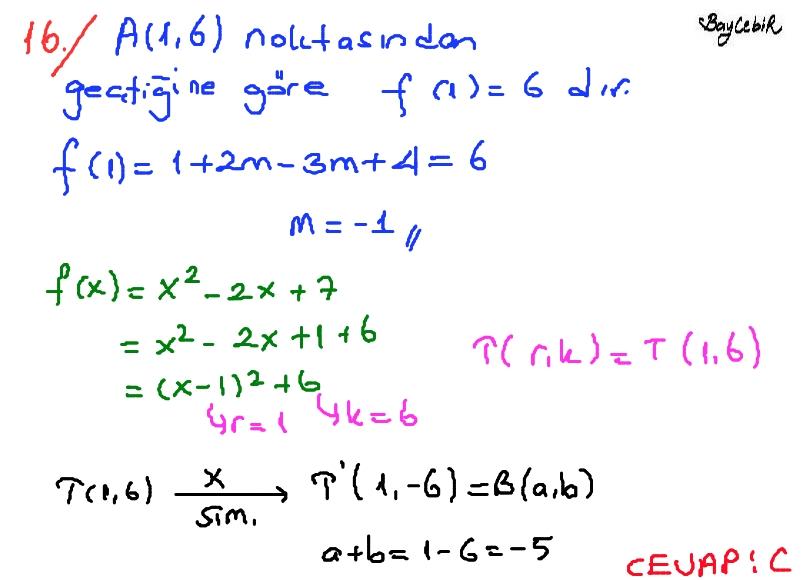 BayCebiR
16./ A(1,6) noktasından
geçtiğine göre f(1)=6 dır.
f(1)= 1+2m-3m+4=6
m=-1//
f(x)= x²-2x+7
= x²- 2x+1+6
= (x-1)²+6
↳r=1 ↳k=6
T(r,k)=T(1,6)
T(1,6) x/sim.→ T'(1,-6)=B(a,b)
a+b=1-6=-5
CEVAP: C